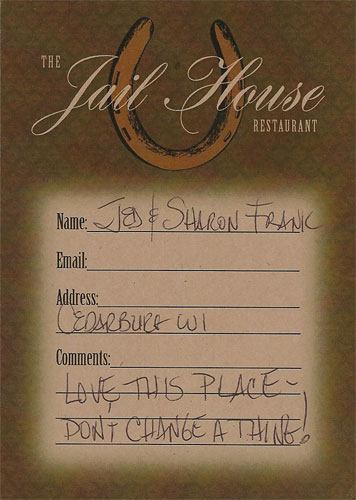 THE
Jail House
RESTAURANT
Name: JED & SHARON FRANK
Email:
Address:
CEDARBURG WI
Comments:
LOVE THIS PLACE -
DON'T CHANGE A THING!